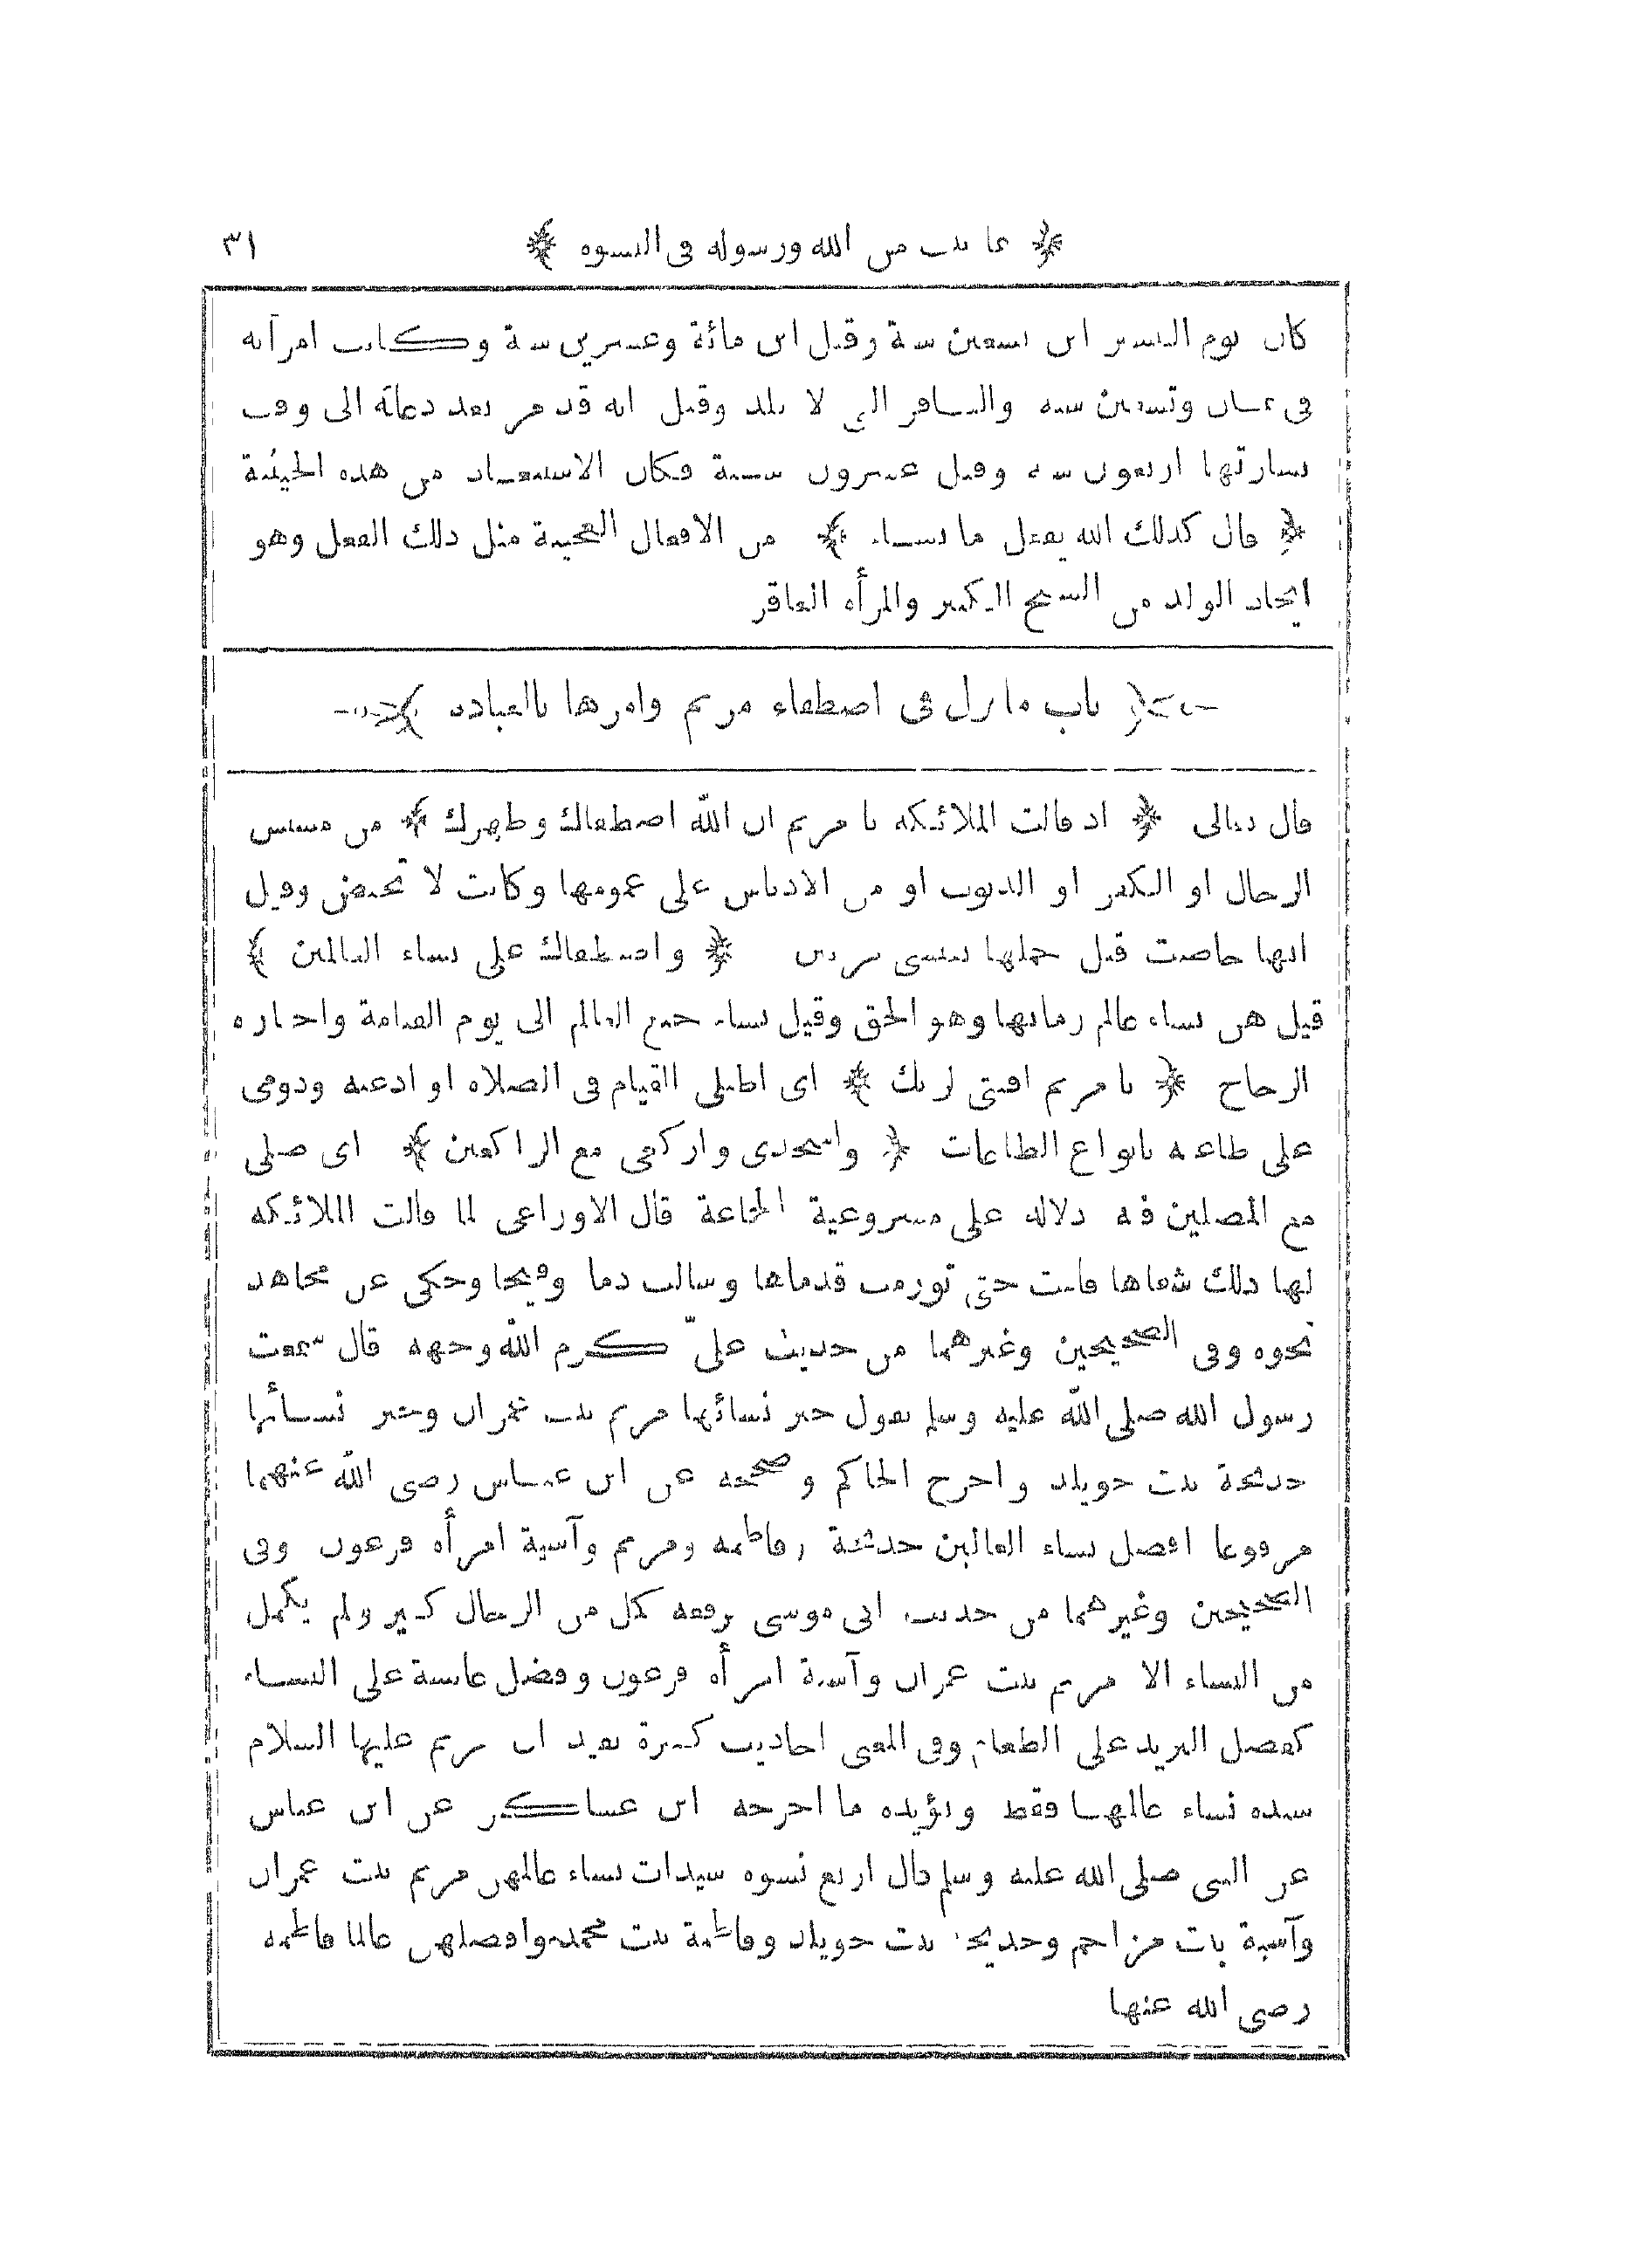 ﴿ ما ثبت من الله ورسوله فى النسوة ﴾ ٣١
كان يوم التبشير ابن تسعين سنة وقيل ابن مائة وعشرين سنة وكانت امرأته
فى ثمان وتسعين سنة والعاقر التى لا تلد وقيل انه قد مر بعد دعائه الى وقت
بشارتها اربعون سنة وقيل عشرون سنة فكان الاستبعاد من هذه الحيثية
﴿ قال كذلك الله يفعل ما يشاء ﴾ من الافعال العجيبة مثل ذلك الفعل وهو
ايجاد الولد من الشيخ الكبير والمرأة العاقر
باب ما نزل فى اصطفاء مريم وامرها بالعبادة
قال تعالى ﴿ اذ قالت الملائكة يا مريم ان الله اصطفاك وطهرك ﴾ من مسيس
الرجال او الكفر او الذنوب او من الادناس على عمومها وكانت لا تحيض وقيل
انها حاضت قبل حملها بعيسى مرتين ﴿ واصطفاك على نساء العالمين ﴾
قيل هن نساء عالم زمانها وهو الحق وقيل نساء جميع العالم الى يوم القيامة واختاره
الزجاج ﴿ يا مريم اقنتى لربك ﴾ اى اطيلى القيام فى الصلاة او ادعيه ودومى
على طاعته بانواع الطاعات ﴿ واسجدى واركعى مع الراكعين ﴾ اى صلى
مع المصلين فيه دلالة على مشروعية الجماعة قال الاوزاعى لما قالت الملائكة
لها ذلك شفاها قامت حتى تورمت قدماها وسالت دما وقيحا وحكى عن مجاهد
نحوه وفى الصحيحين وغيرهما من حديث علىّ كرم الله وجهه قال سمعت
رسول الله صلى الله عليه وسلم يقول خير نسائها مريم بنت عمران وخير نسائها
خديجة بنت خويلد واخرج الحاكم وصححه عن ابن عباس رضى الله عنهما
مرفوعا افضل نساء العالمين خديجة وفاطمة ومريم وآسية امرأة فرعون وفى
الصحيحين وغيرهما من حديث ابى موسى يرفعه كمل من الرجال كثير ولم يكمل
من النساء الا مريم بنت عمران وآسية امرأة فرعون وفضل عائشة على النساء
كفضل الثريد على الطعام وفى المعنى احاديث كثيرة تفيد ان مريم عليها السلام
سيدة نساء عالمها فقط ويؤيده ما اخرجه ابن عساكر عن ابن عباس
عن النبى صلى الله عليه وسلم قال اربع نسوة سيدات نساء عالمهن مريم بنت عمران
وآسية بنت مزاحم وخديجة بنت خويلد وفاطمة بنت محمد وافضلهن عالما فاطمة
رضى الله عنها